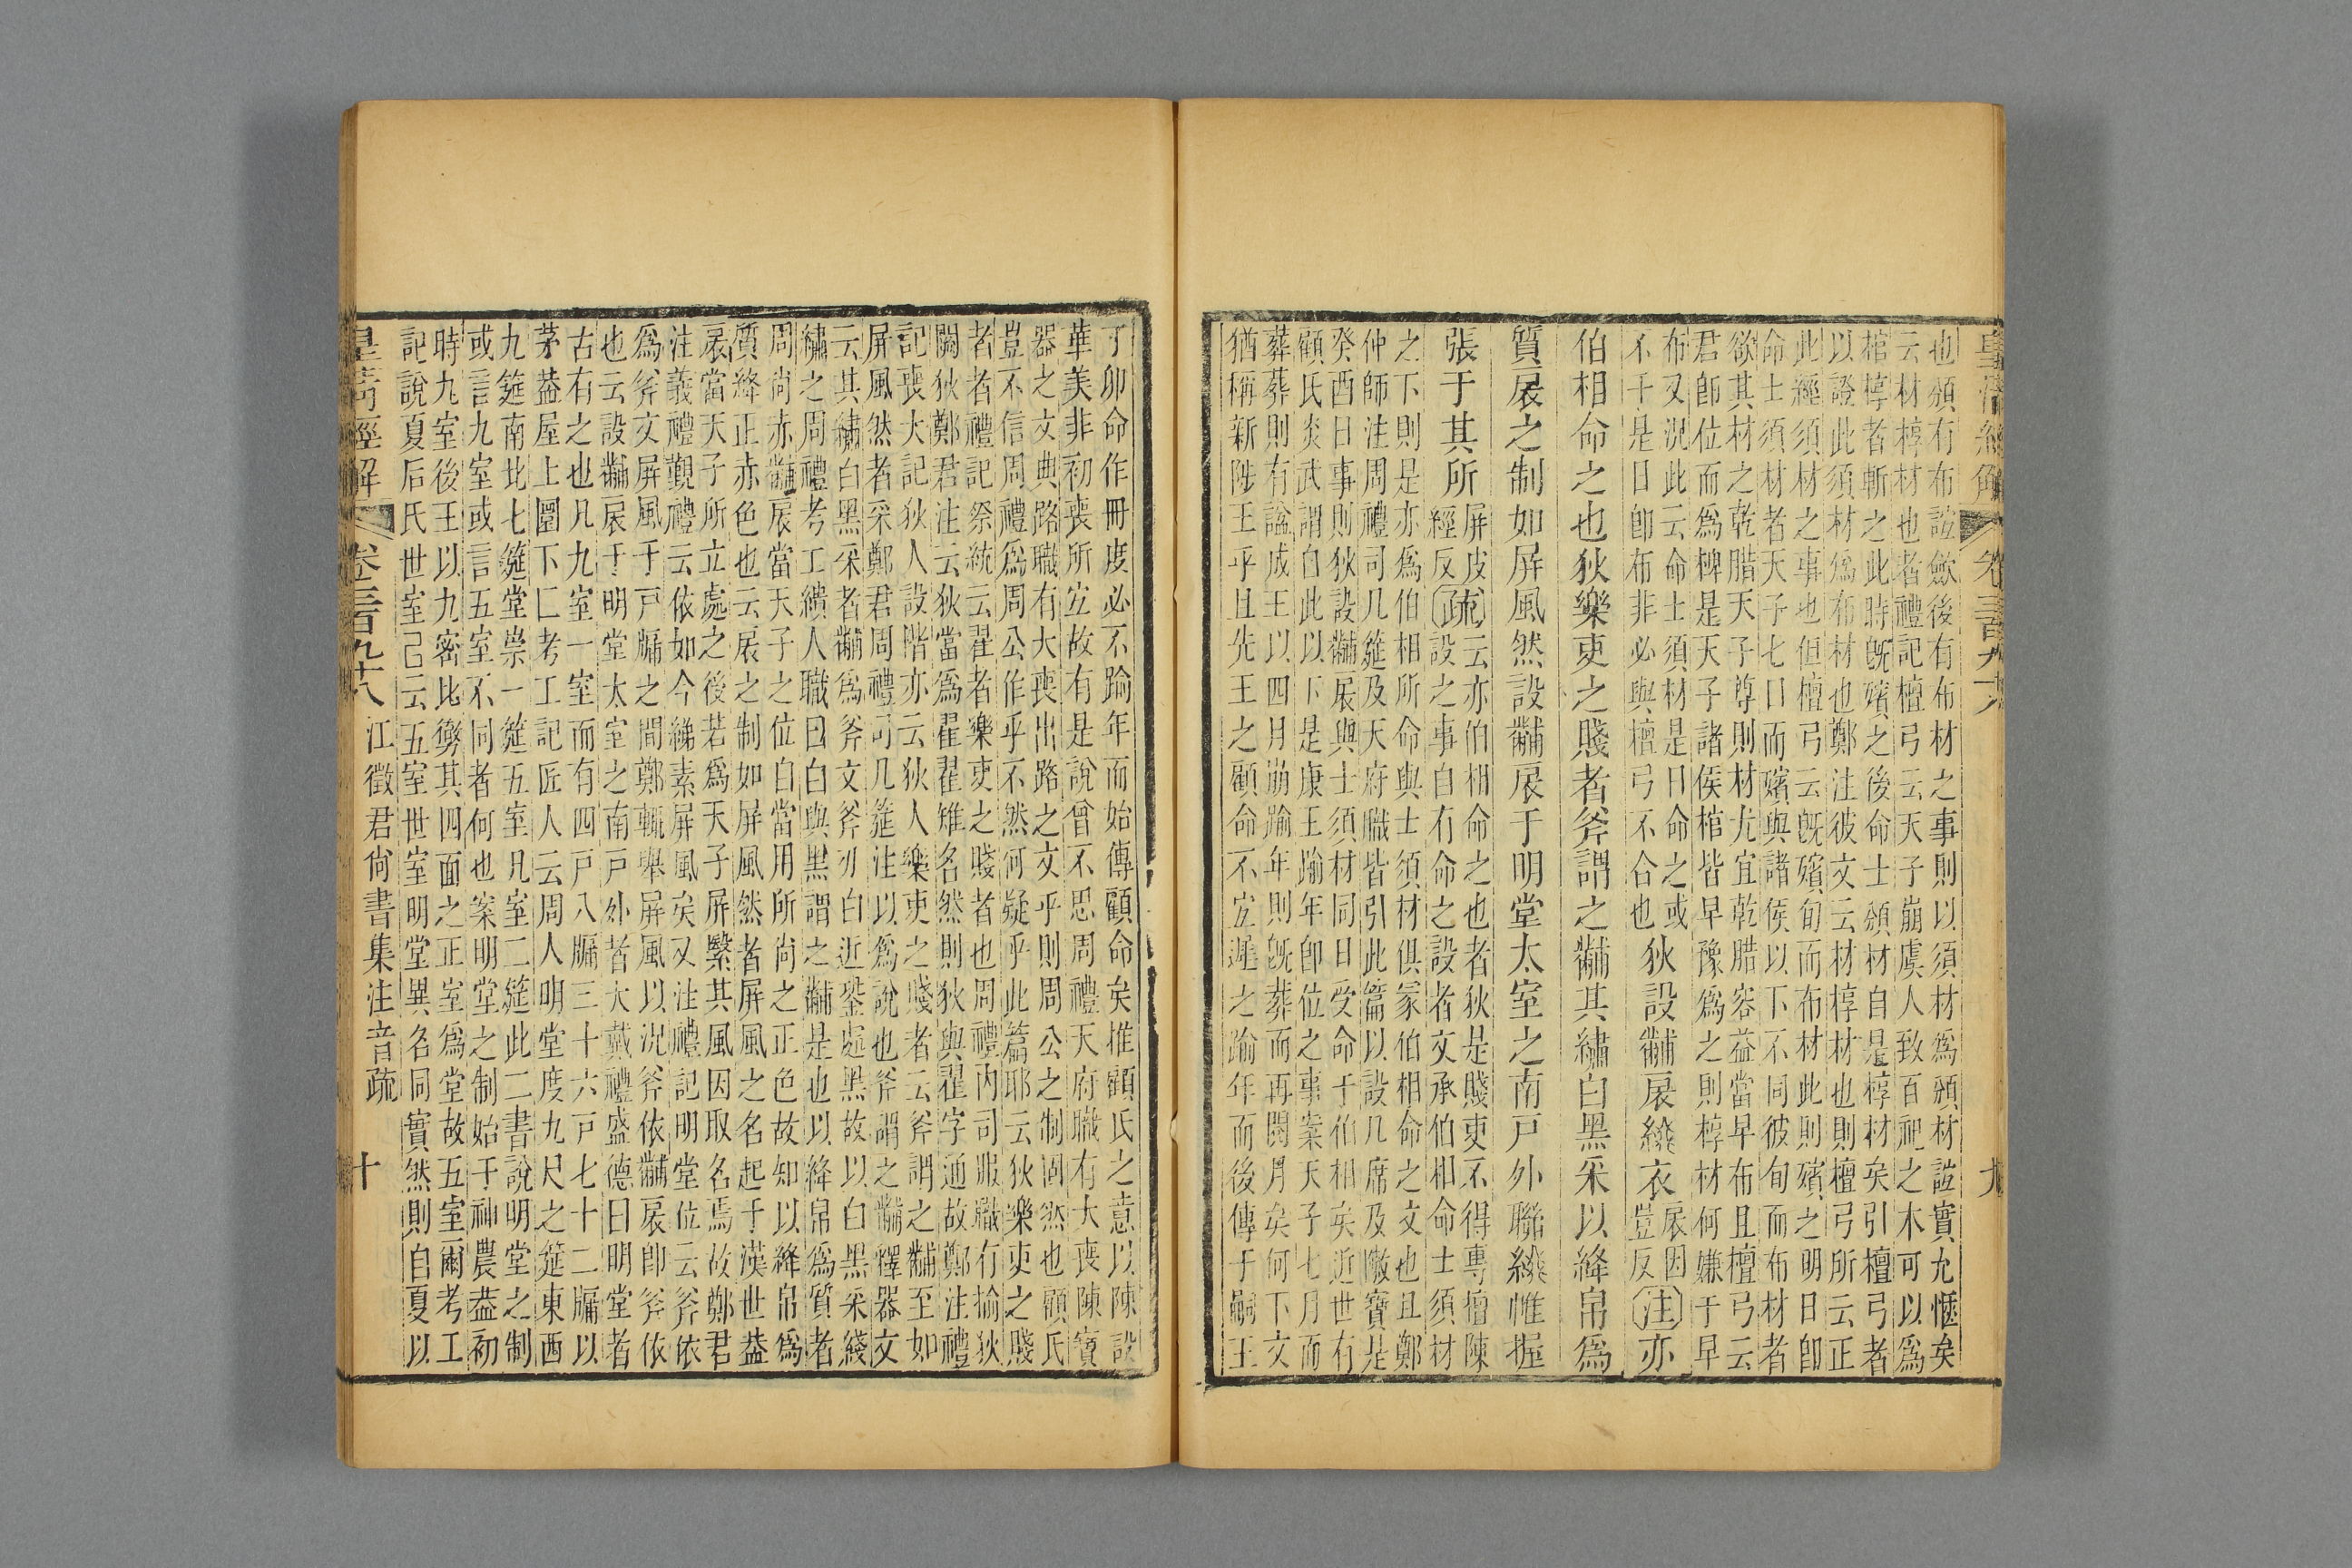 皇清經解 卷三百九十八 九
也頒有布誥斂後有布材之事則以須材為頒材誥實允愜矣
云材椁材也者禮記檀弓云天子崩虞人致百祀之木可以為
棺椁者斬之此時旣殯之後命士頒材自是椁材矣引檀弓者
以證此須材為布材也鄭注彼文云材椁材也則檀弓所云正
此經須材之事也但檀弓云旣殯旬而布材此則殯之明日卽
命士須材者天子七日而殯與諸侯以下不同彼旬而布材者
欲其材之乾腊天子尊則材尤宜乾腊容益當早布且檀弓云
君卽位而為椑是天子諸侯棺皆早豫為之則椁材何嫌于早
布又況此云命士須材是日命之或
不于是日卽布非必與檀弓不合也
狄設黼扆綴衣
扆因
豈反
注亦
伯相命之也狄樂吏之賤者斧謂之黼其繡白黑采以絳帛為
質扆之制如屏風然設黼扆于明堂太室之南戸外聯綴帷握
張于其所
屏皮
經反
疏
云亦伯相命之也者狄是賤吏不得專擅陳
設之事自有命之設者文承伯相命士須材
之下則是亦為伯相所命與士須材俱冡伯相命之文也且鄭
仲師注周禮司几筵及天府職皆引此篇以設几席及陳寶是
癸酉日事則狄設黼扆與士須材同日受命于伯相矣近世有
顧氏炎武謂自此以下是康王踰年卽位之事案天子七月而
葬葬則有諡成王以四月崩踰年則旣葬而再閱月矣何下文
猶稱新陟王乎且先王之顧命不宜遲之踰年而後傳于嗣王
子卯命作冊度必不踰年而始傳顧命矣惟顧氏之意以陳設
華美非初喪所宜故有是說曾不思周禮天府職有大喪陳寶
器之文典路職有大喪出路之文乎則周公之制固然也顧氏
豈不信周禮為周公作乎不然何疑乎此篇耶云狄樂吏之賤
者者禮記祭統云翟者樂吏之賤者也周禮內司服職有揄狄
闕狄鄭君注云狄當為翟翟雉名然則狄與翟字通故鄭注禮
記喪大記狄人設階亦云狄人樂吏之賤者云斧謂之黼至如
屏風然者采鄭君周禮司几筵注以為說也斧謂之黼釋器文
云其繡白黑采者黼為斧文斧刃白近銎處黑故以白黑采綫
繡之周禮考工繢人職曰白與黑謂之黼是也以絳帛為質者
周尚赤黼扆當天子之位自當用所尚之正色故知以絳帛為
質絳正赤色也云扆之制如屏風然者屏風之名起于漢世葢
扆當天子所立處之後若為天子屏繄其風因取名焉故鄭君
注義禮覲禮云依如今綈素屏風矣又注禮記明堂位云斧依
為斧文屏風于戸牖之間鄭輒舉屏風以況斧依黼扆卽斧依
也云設黼扆于明堂太室之南戸外者大戴禮盛德曰明堂者
古有之也凡九室一室而有四戸八牖三十六戸七十二牖以
茅葢屋上圜下匚考工記匠人云周人明堂度九尺之筵東西
九筵南北七筵堂崇一筵五室凡室二筵此二書說明堂之制
或言九室或言五室不同者何也案明堂之制始于神農葢初
時九室後王以九密比劈其四面之正室為堂故五室爾考工
記說夏后氏世室已云五室世室明堂異名同實然則自夏以
皇清經解 卷三百九十八 江徵君尙書集注音疏 十